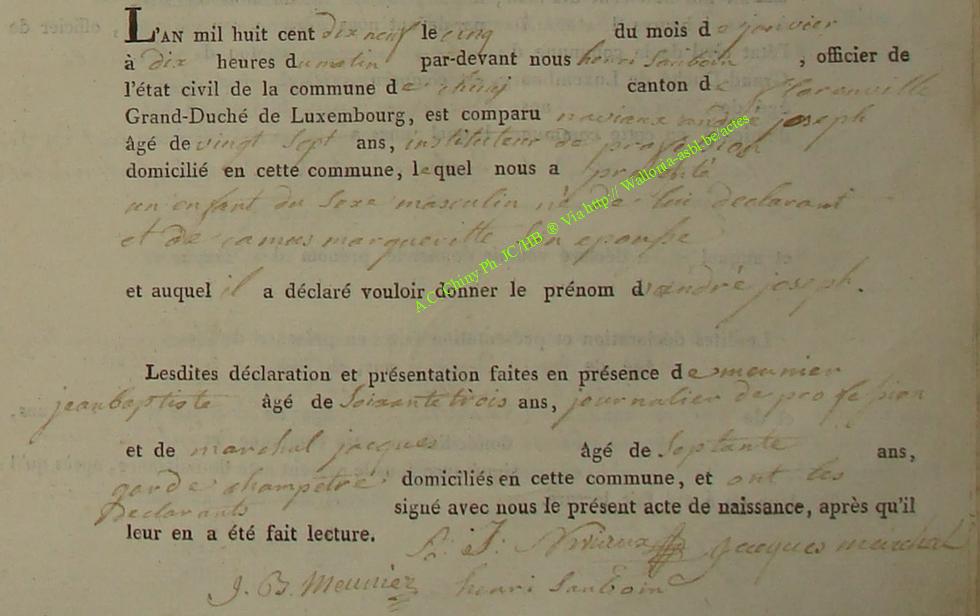 L'AN mil huit cent dix neuf le cinq du mois de janvier
à dix heures du matin par-devant nous henri Sauboin , officier de
l'état civil de la commune de chinj canton de florenville
Grand-Duché de Luxembourg, est comparu naviaux andré joseph
âgé de vingt Sept ans, instituteur de profession
domicilié en cette commune, lequel nous a présenté
un enfant du Sexe masculin né de lui declarant
et de camus margueritte Son epouse
et auquel il a déclaré vouloir donner le prénom d'andré joseph.
Lesdites déclaration et présentation faites en présence de meunier
jeanbaptiste âgé de Soixante trois ans, journalier de profession
et de marchal jacques âgé de Septante ans,
garde champetre domiciliés en cette commune, et ont les
Declarants signé avec nous le présent acte de naissance, après qu'il
leur en a été fait lecture.
A: J: Naviaux jacques marchal
J. B. Meunier henri Sauboin
A.C. Chiny Ph. JC/HB ® Via http// Wallonia-asbl.be/actes